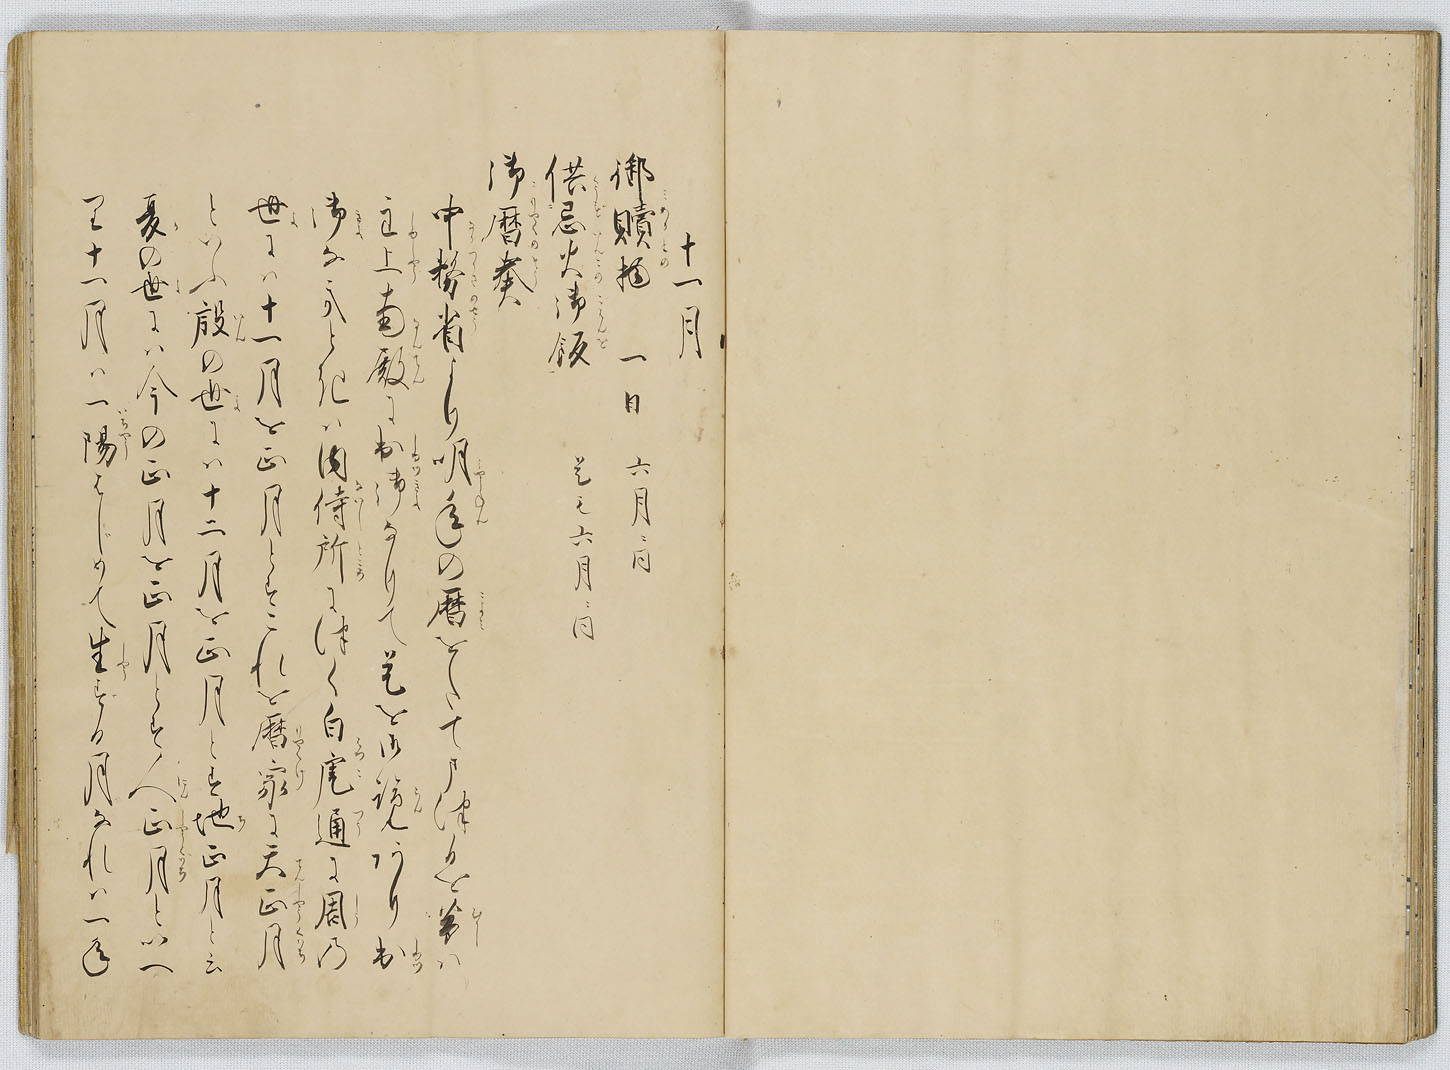 十一月
御贖物　一日　六月ニ同
供忌火御飯　是モ六月ニ同
御暦奏
中務省より明年の暦をたてまつるを奏ハ
主上南殿に出御なりて是を御覧あり出
御なきときハ内侍所につく白虎通に周の
世にハ十一月を正月とすこれを暦家に天正月
といふ殷の世にハ十二月を正月とす地正月と云
夏の世にハ今の正月を正月とす人正月といへ
り十一月ハ一陽はじめて生ずる月なれハ一年